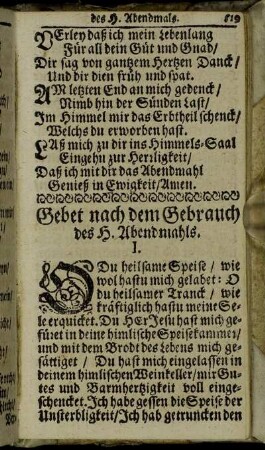 des H. Abendmals. 819
VErley daß ich mein Lebenlang
Für all dein Güt und Gnad/
Dir sag von gantzem Hertzen Danck/
Und dir dien früh und spat.
AM letzten End an mich gedenck/
Nimb hin der Sünden Last/
Im Himmel mir das Erbtheil schenck/
Welchs du erworben hast.
LAß mich zu dir ins Himmels-Saal
Eingehn zur Herrligkeit/
Daß ich mit dir das Abendmahl
Genieß in Ewigkeit/Amen.
Gebet nach dem Gebrauch
des H. Abendmahls.
I.
O Du heilsame Speise / wie
wol hastu mich gelabet: O
du heilsamer Tranck / wie
kräfftiglich hastu meine See-
le erquicket. Du HErJesu hast mich ge-
füret in deine himlische Speisekammer/
und mit dem Brodt des Lebens mich ge-
sättiget / Du hast mich eingelassen in
deinem himlischen Weinkeller/mir Gu-
tes und Barmhertzigkeit voll einge-
schencket. Ich habe gessen die Speise der
Unsterbligkeit/Ich hab getruncken den